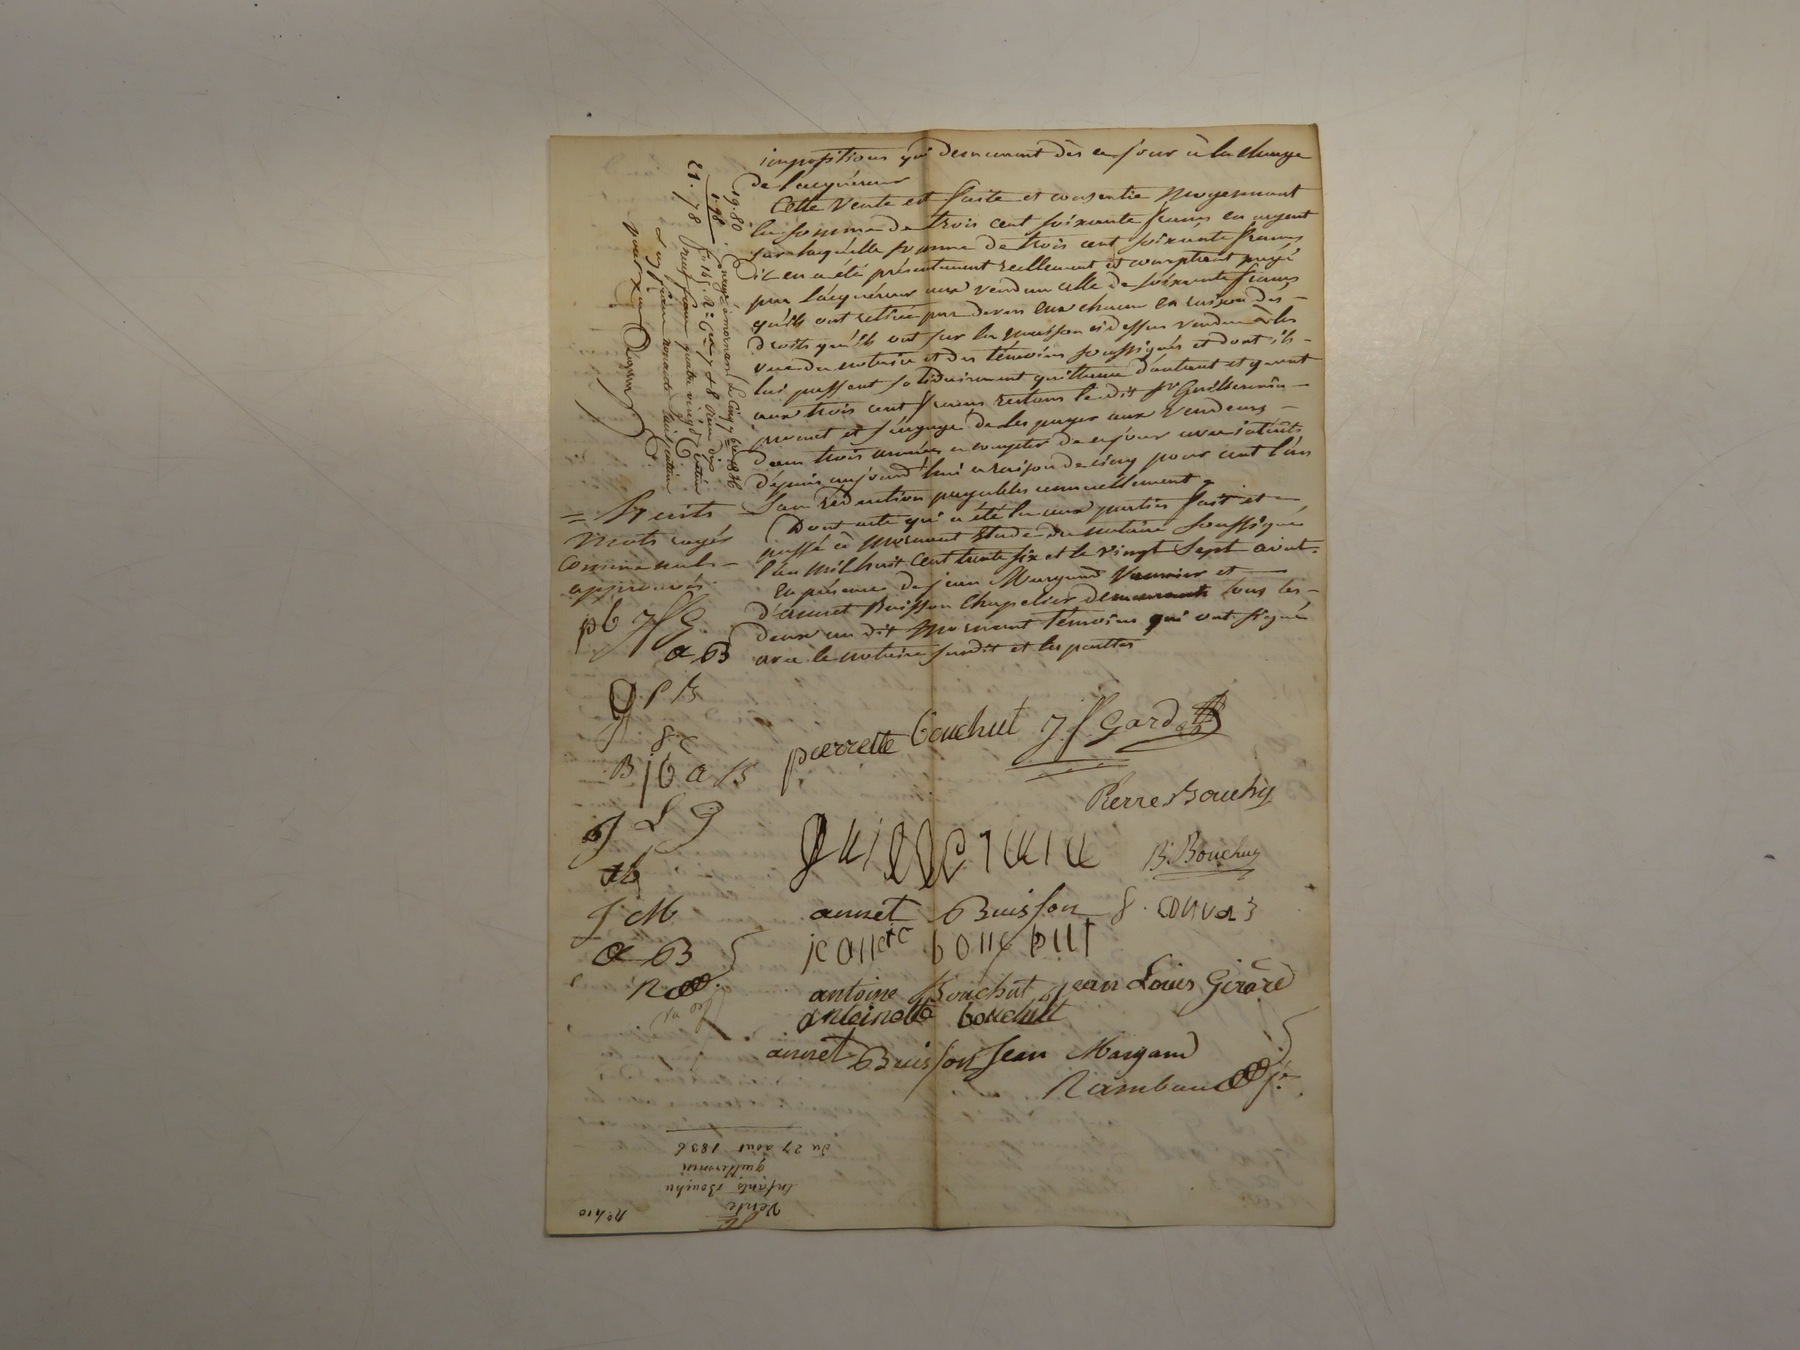 impositions qui demeurent dès ce jour à la charge
de l'acquéreur
Cette vente est faite et consentie moyennant
la somme de trois cent soixante francs en argent
sur laquelle somme de trois cent soixante francs
il en a été présentement reellement et comptant payé
par l'acquéreur aux vendeurs celle de soixante francs
qu'ils ont retirée par devers eux chacun en raison des
droits qu'ils ont sur la maison ci dessus vendue à la
vue du notaire et des témoins soussignés et dont ils
lui passent solidairement quittance d'autant et quant
aux trois cent francs restans le dit Sr Guillermin
promet et s'engage de les payer aux vendeurs
dans trois années a compter de ce jour avec intérêts
depuis aujourd'hui a raison de cinq pour cent l'an
sans réduction payables annuellement
Dont acte qui a été lu aux parties fait et
passé à Mornant étude du notaire soussigné
l'an mil huit cent trente six et le vingt sept aout
En présence de jean Margand et
d'annet Buisson chapelier demeurants tous les
deux au dit Mornant témoins qui ont signé
avec le notaire susdit et les parties
19.80
1.98
21.78
= huit
mots rayés
comme nuls
approuvés
pb jfG
a B
g. P B
B jb a B
J L G
ab
J M
a B
R
pierrette bouchut J. f. Gardet
Pierre Bouchu
guillermin B. Bouchu
annet Buisson
jeanete bouchut
antoine Bouchut jean Louis Girard
antoinette bouchut
annet Buisson Jean Margand
Rambaud
N° 410
Vente
Enfants Bouchu
guillermin
du 27 aout 1836